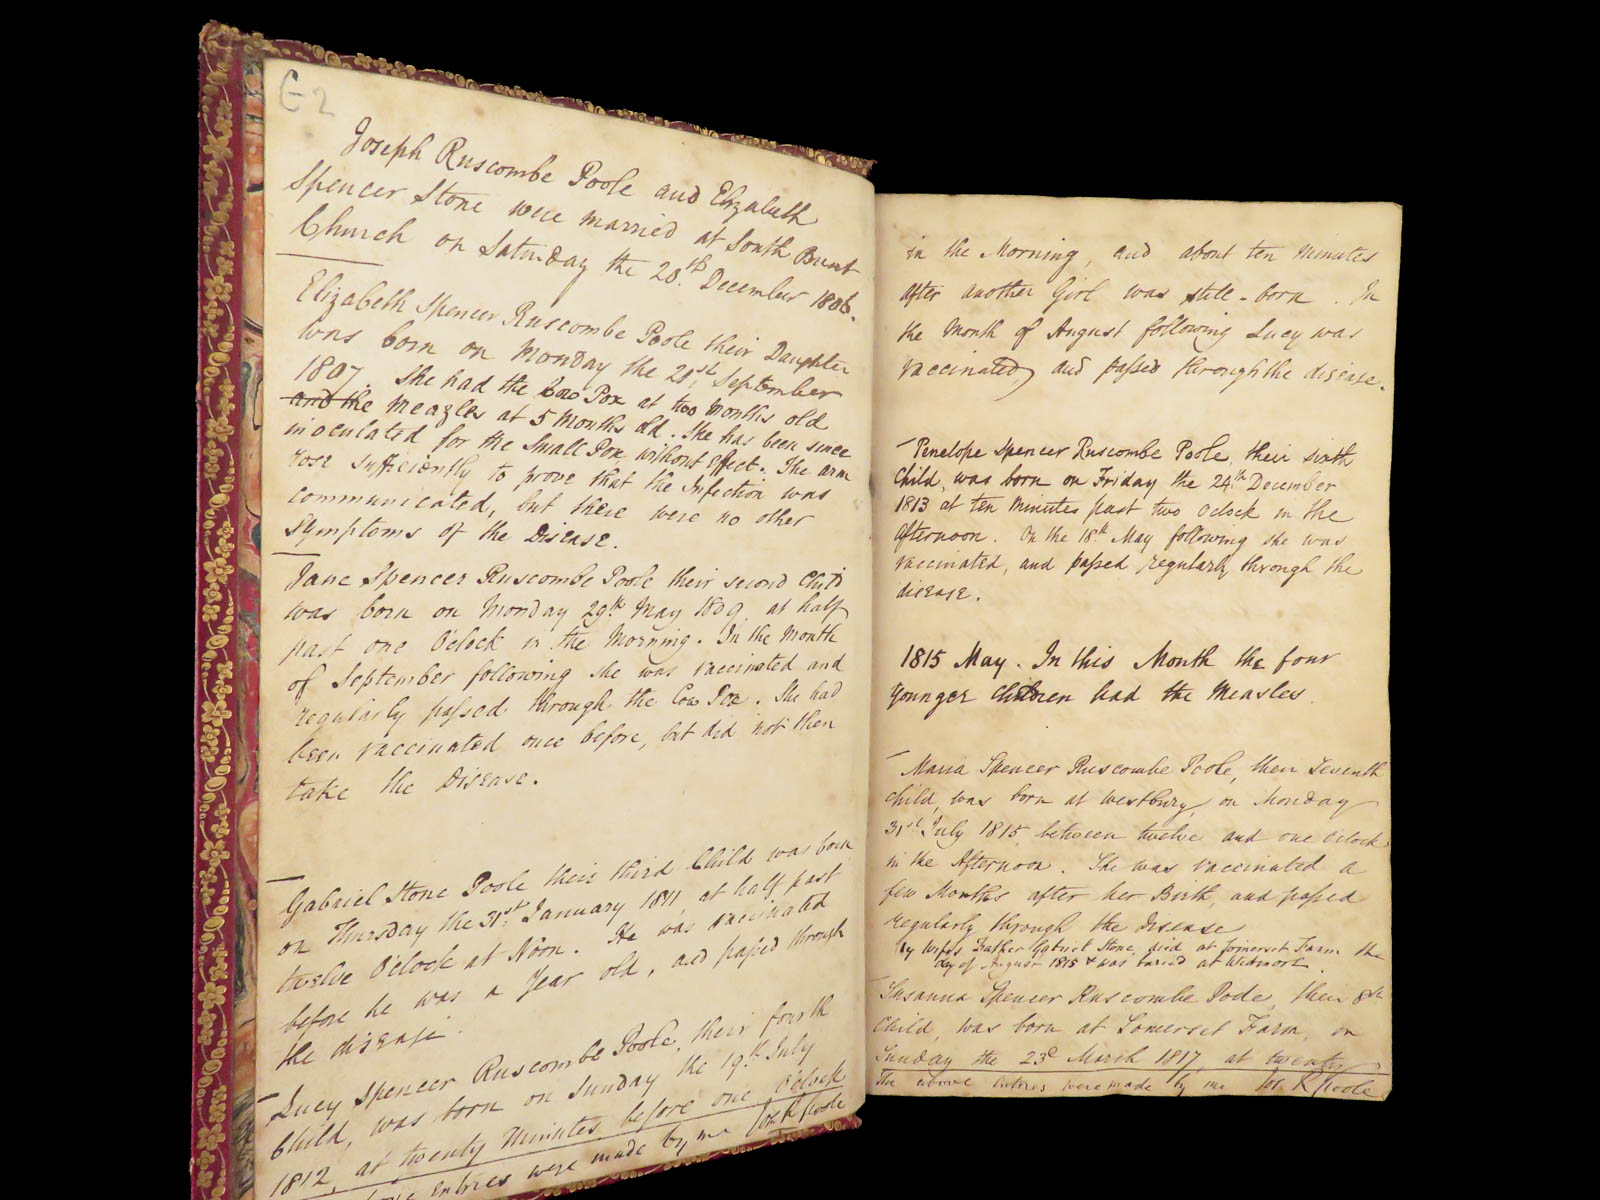 G 2
Joseph Ruscombe Poole and Elizabeth
Spencer Stone were married at South Brent
Church on Saturday the 20th. December 1806.
Elizabeth Spencer Ruscombe Poole their Daughter
was born on Monday the 21st. September
1807. She had the Cow Pox at two Months old
and the Meazles at 5 Months old. She has been since
inoculated for the Small Pox without Effect. The arm
rose sufficiently to prove that the Infection was
communicated, but there were no other
symptoms of the Disease.
Jane Spencer Ruscombe Poole their second Child
was born on Monday 29th May 1809, at half
past one O'clock in the Morning. In the Month
of September following she was vaccinated and
regularly passed through the Cow Pox. She had
been vaccinated once before, but did not then
take the Disease.
Gabriel Stone Poole their third Child was born
on Thursday the 31st. January 1811, at half past
twelve O'clock at Noon. He was vaccinated
before he was a Year old, and passed through
the disease.
Lucy Spencer Ruscombe Poole, their fourth
Child, was born on Sunday the 19th July
1812, at twenty Minutes before one O'clock
entries were made by me Jos R Poole
in the Morning, and about ten Minutes
after another Girl was still-born. In
the Month of August following Lucy was
vaccinated, and passed through the disease.
Penelope Spencer Ruscombe Poole, their sixth
Child, was born on Friday the 24th December
1813 at ten Minutes past two O'clock in the
Afternoon. On the 18th May following she was
vaccinated, and passed regularly through the
disease.
1815 May. In this Month the four
younger Children had the Measles.
Maria Spencer Ruscombe Poole, their Seventh
Child, was born at Westbury, on Monday
31st July 1815, between twelve and one O'clock
in the Afternoon. She was vaccinated a
few Months after her Birth, and passed
regularly through the Disease
My Wife's Father Gabriel Stone, died at Somerset Farm the
day of August 1815 & was buried at Wedmore.
Susanna Spencer Ruscombe Poole, their 8th
Child, was born at Somerset Farm, on
Sunday the 23d March 1817, at twenty
The above entries were made by me Jos R Poole